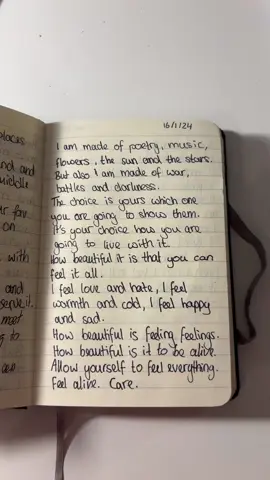 places
nd and
middle
ur far
on
with
and
serve it.
meet
ng to
can
16/1/24
I am made of poetry, music,
flowers, the sun and the stars.
But also I am made of war,
battles and darkness.
The choice is yours which one
you are going to show them.
It's your choice how you are
going to live with it.
How beautiful it is that you can
feel it all.
I feel love and hate, I feel
warmth and cold, I feel happy
and sad.
How beautiful is feeling feelings.
How beautiful is it to be alive.
Allow yourself to feel everything.
Feel alive. Care.